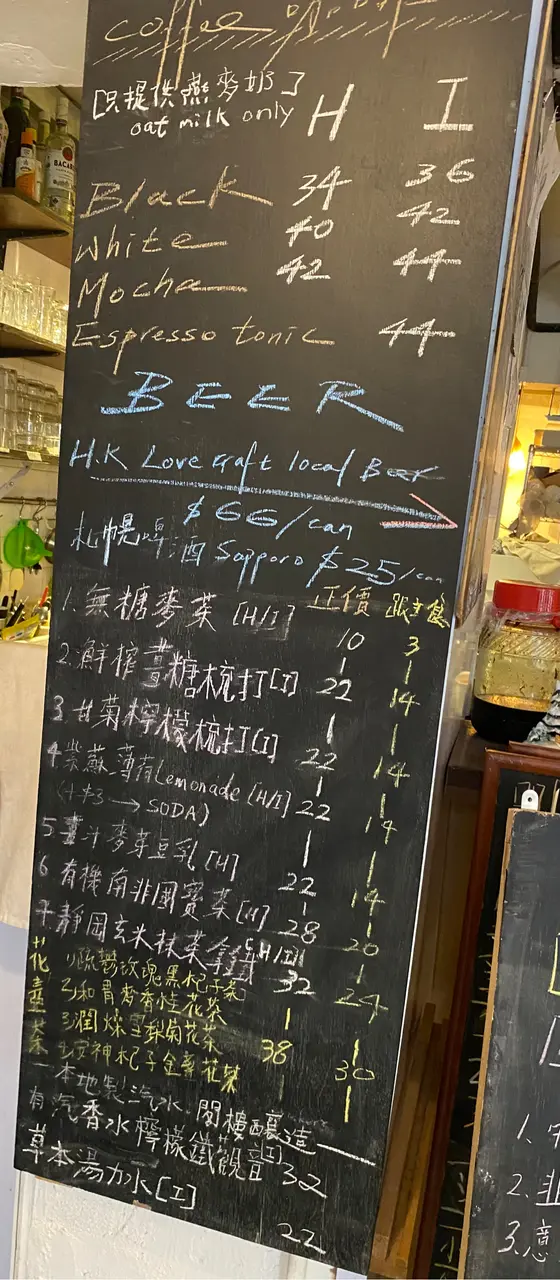 coffee
[只提供燕麥奶]
oat milk only H I
Black 34 36
White 40 42
Mocha 42 44
Espresso tonic 44
BEER
H.K Lovecraft local Beer
$66/can
札幌啤酒 Sapporo $25/can
正價 跟主食
1. 無糖麥茶 [H/I] 10 3
2. 鮮榨薑糖梳打[I] 22 14
3 甘菊檸檬梳打[I] 22 14
4 紫蘇薄荷Lemonade [H/I] 22 14
(+#3 → SODA)
5 薑汁麥芽豆乳 [H] 22 14
6 有機南非國寶茶 [H] 28 20
7 靜岡玄米抹茶拿鐵[H/I] 32 24
花草茶
玫瑰黑杞子茶
2)和胃麥香桂花茶
3)潤燥雪梨菊花茶 38 30
4)安神杞子金菊花茶
本地製汽水 閣樓釀造
有汽香水檸檬鐵觀音[I] 32
草本湯力水[I] 22
1.
2. 非
3. 意